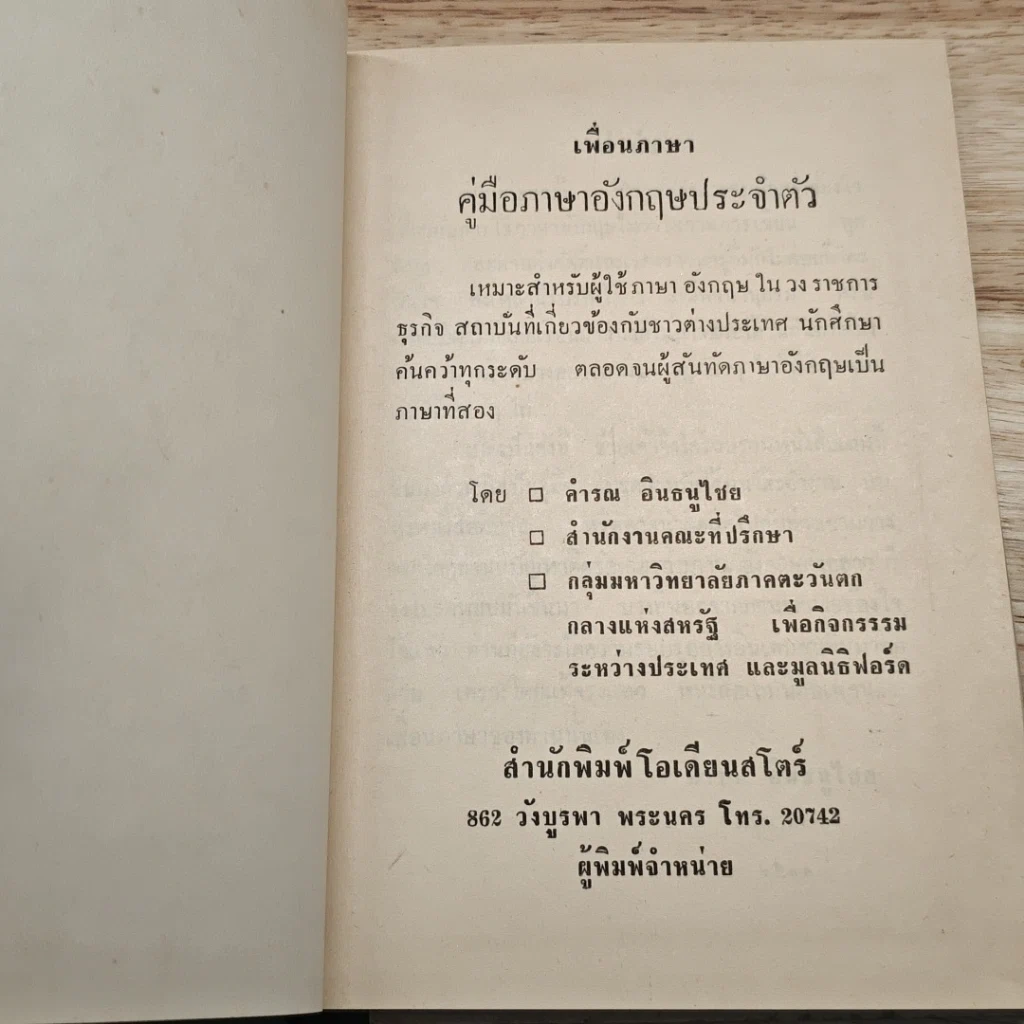 เพื่อนภาษา
คู่มือภาษาอังกฤษประจำตัว
เหมาะสำหรับผู้ใช้ภาษา อังกฤษ ใน วง ราชการ
ธุรกิจ สถาบันที่เกี่ยวข้องกับชาวต่างประเทศ นักศึกษา
ค้นคว้าทุกระดับ ตลอดจนผู้สันทัดภาษาอังกฤษเป็น
ภาษาที่สอง
โดย □ คำรณ อินธนูไชย
□ สำนักงานคณะที่ปรึกษา
□ กลุ่มมหาวิทยาลัยภาคตะวันตก
กลางแห่งสหรัฐ เพื่อกิจกรรรม
ระหว่างประเทศ และมูลนิธิฟอร์ด
สำนักพิมพ์โอเดียนสโตร์
862 วังบูรพา พระนคร โทร. 20742
ผู้พิมพ์จำหน่าย